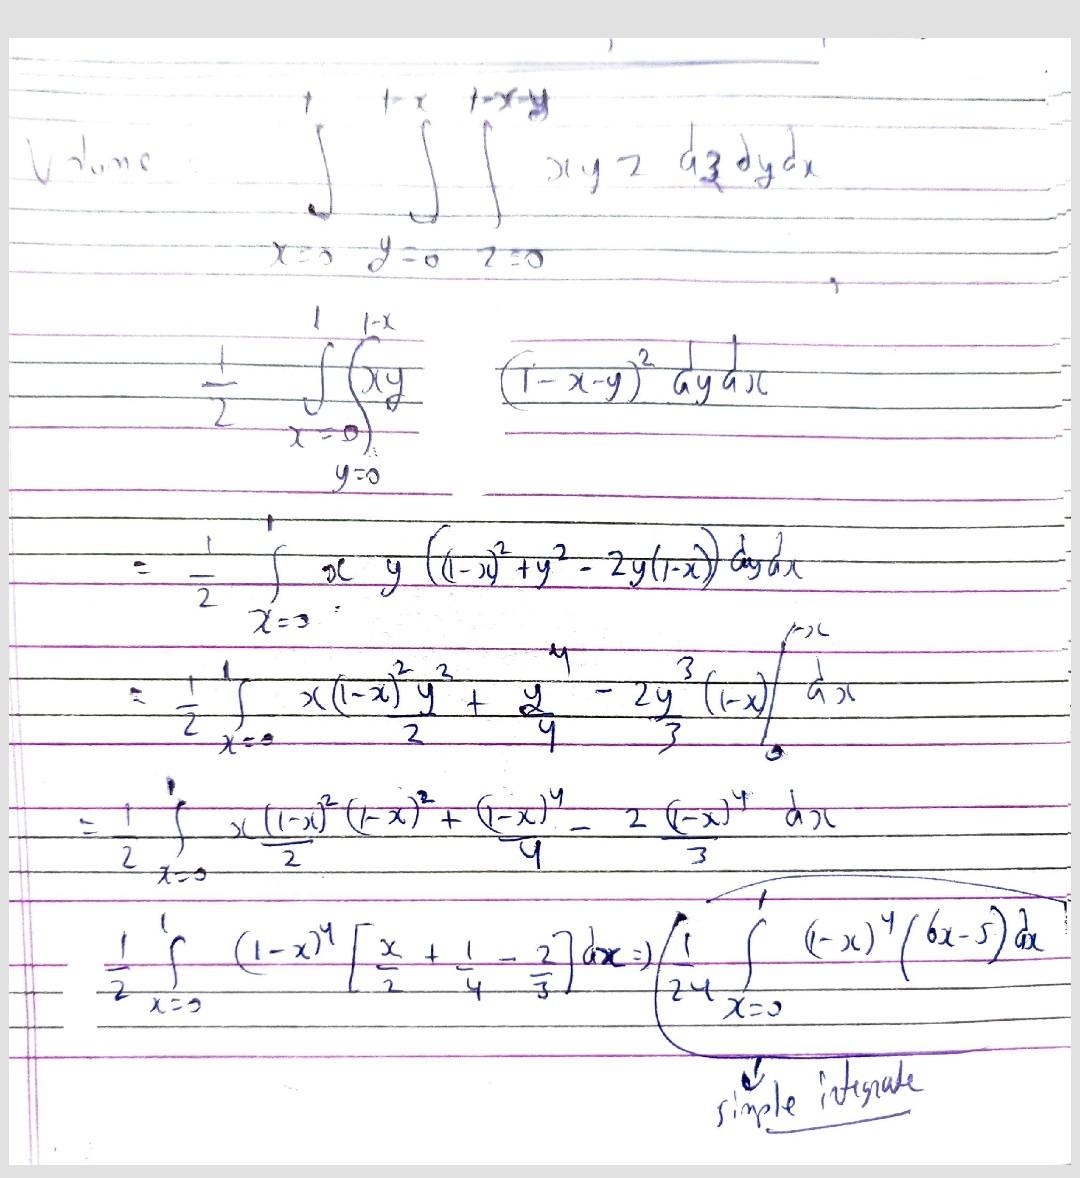 Volume ∫_{x=0}^{1} ∫_{y=0}^{1-x} ∫_{z=0}^{1-x-y} xyz dz dy dx
1/2 ∫_{x=0}^{1} ∫_{y=0}^{1-x} xy (1-x-y)² dy dx
= 1/2 ∫_{x=0}^{1} x y ((1-x)² + y² - 2y(1-x)) dy dx
= 1/2 ∫_{x=0}^{1} x(1-x)² y²/2 + y⁴/4 - 2y³/3 (1-x) |_{0}^{1-x} dx
= 1/2 ∫_{x=0}^{1} x (1-x)² (1-x)²/2 + (1-x)⁴/4 - 2 (1-x)⁴/3 dx
1/2 ∫_{x=0}^{1} (1-x)⁴ [x/2 + 1/4 - 2/3] dx => 1/24 ∫_{x=0}^{1} (1-x)⁴ (6x-5) dx
simple integrate